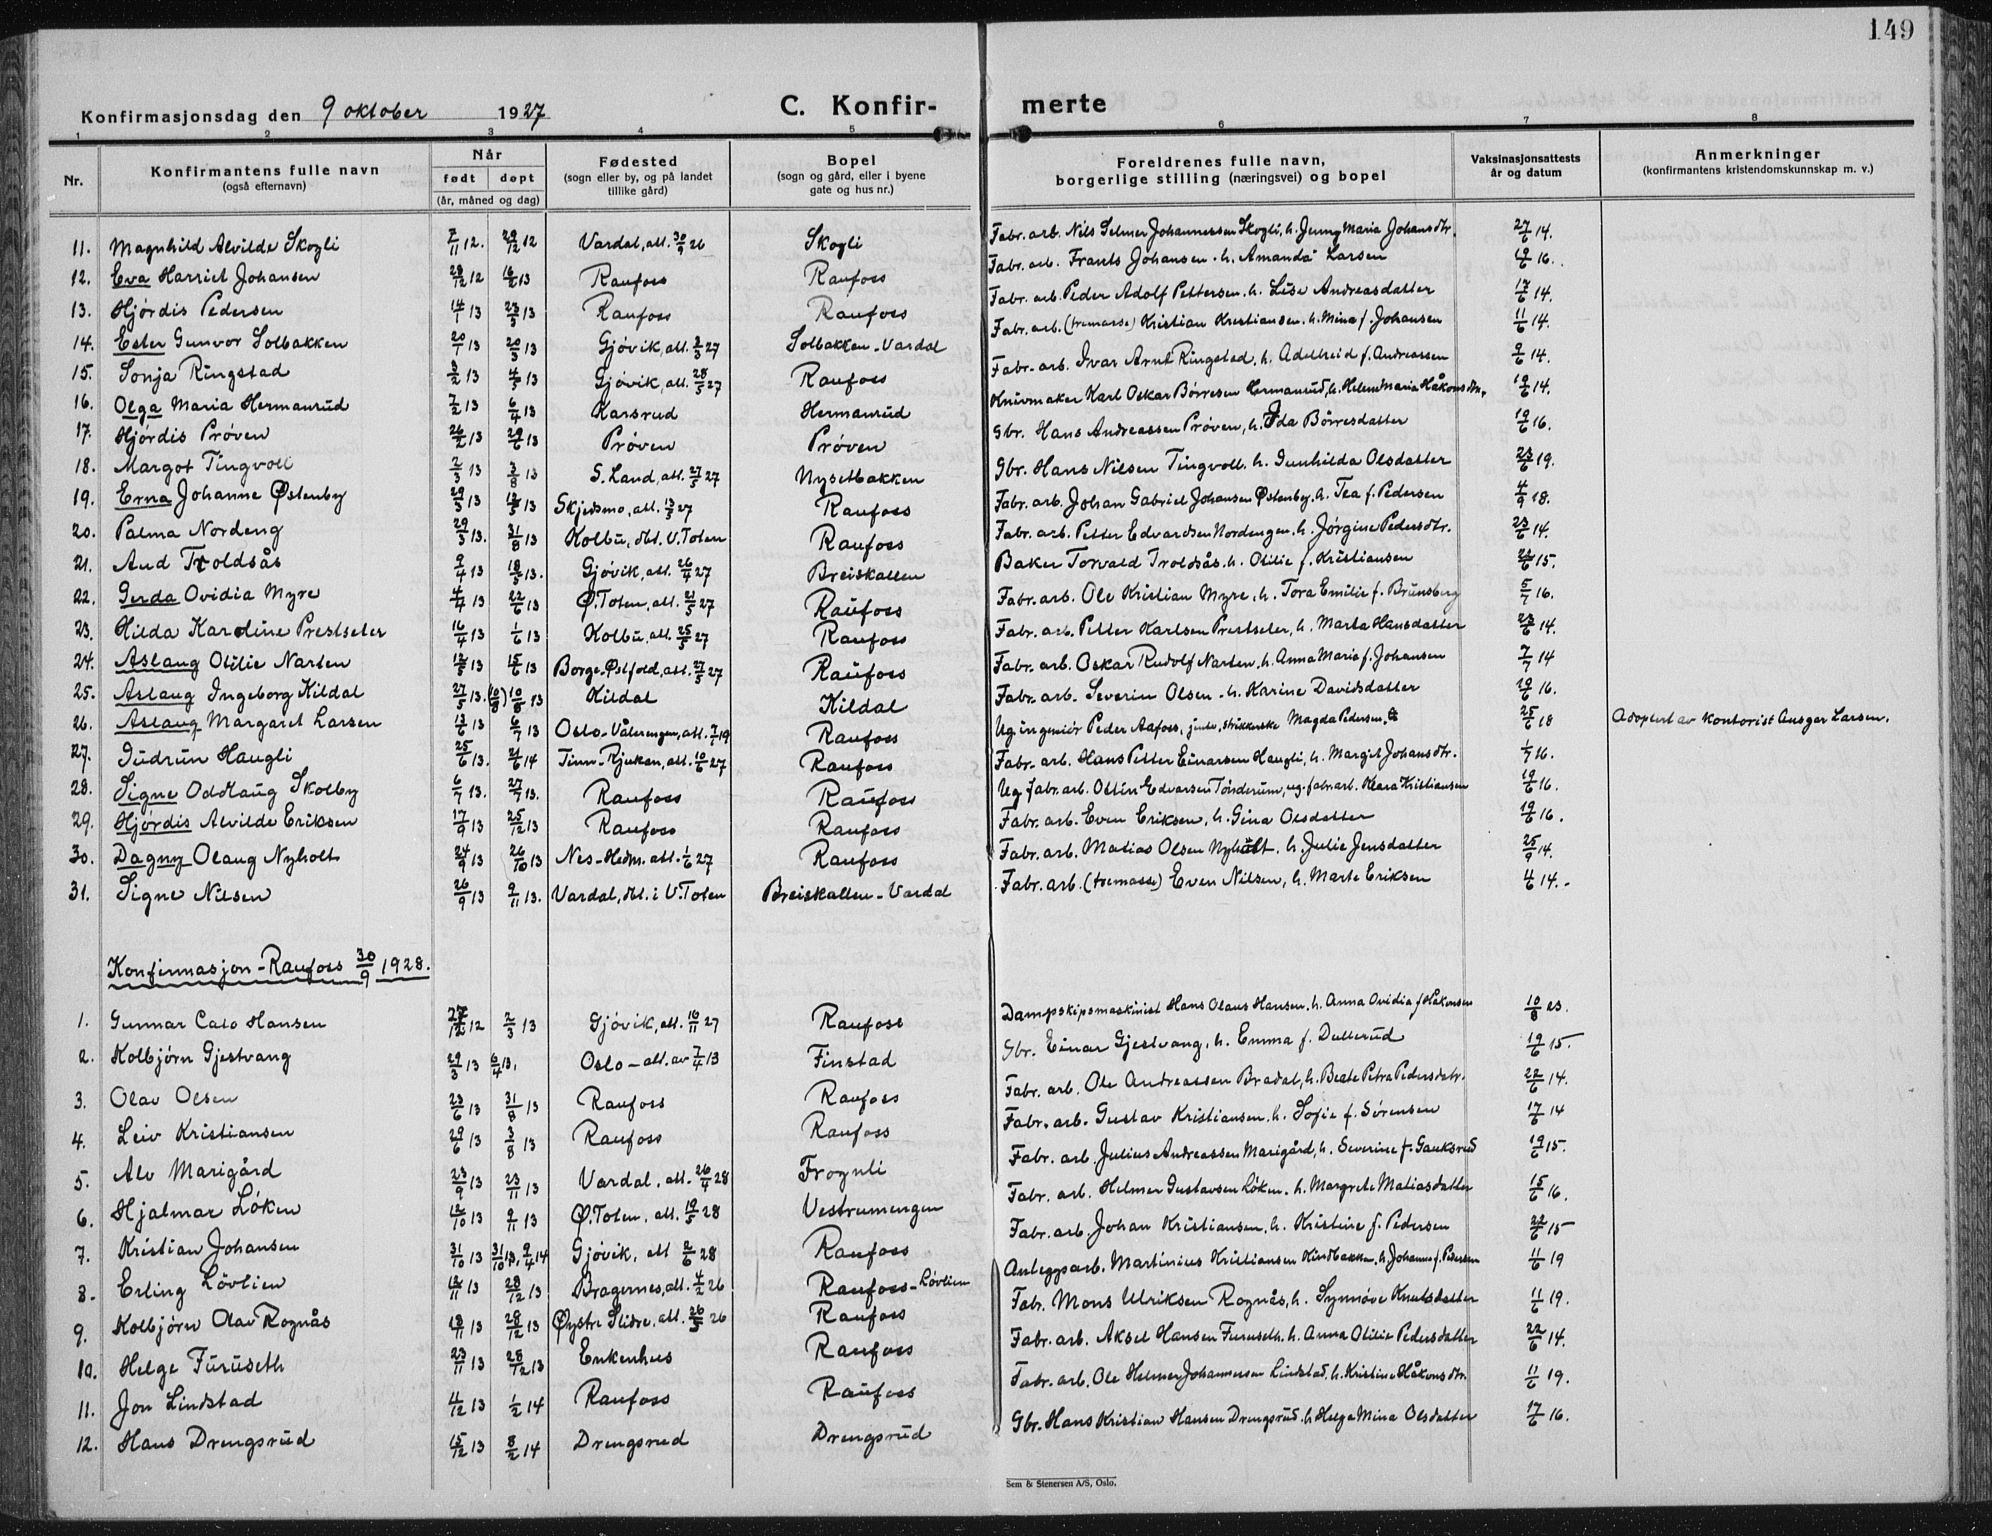 149
Konfirmasjonsdag den 9 oktober 1927 C. Konfir- merte
1 2 3 4 5 6 7 8
Nr. Konfirmantens fulle navn (også efternavn) Når født døpt (år, måned og dag) Fødested (sogn eller by, og på landet tillike gård) Bopel (sogn og gård, eller i byene gate og hus nr.) Foreldrenes fulle navn, borgerlige stilling (næringsvei) og bopel Vaksinasjonsattests år og datum Anmerkninger (konfirmantens kristendomskunnskap m. v.)
11. Magnhild Alvilde Skogli 7/11 12. 29/12 12 Vardal, att. 30/9 26 Skogli Fabr. arb. Nils Selmer Johannessen Skogli, h. Jenny Maria Johansdtr. 27/6 14.
12. Eva Harriet Johansen 28/12 12 16/2 13 Raufoss Raufoss Fabr. arb. Frants Johansen. h. Amanda Larsen 19/6 16.
13. Hjørdis Pedersen 14/1 13 23/3 13 Raufoss Raufoss Fabr. arb. Peder Adolf Pettersen. h. Lise Andreasdatter 17/6 14.
14. Ester Gunvor Solbakken 20/1 13 20/3 13 Gjøvik, att. 3/3 27 Solbakken - Vardal Fabr. arb. (tremasse) Kristian Kristiansen. h. Mina f. Johansen 11/6 14.
15. Sonja Ringstad 3/2 13 4/5 13 Gjøvik, att. 28/5 27 Raufoss Fabr. arb. Ivar Arnt Ringstad, h. Adelheid f. Andreassen 9/6 14.
16. Olga Maria Hermanrud 7/2 13 6/4 13 Karsrud Hermanrud Knivmaker Karl Oskar Børresen Hermanrud, h. Helene Maria Håkonsdtr. 19/6 14.
17. Hjørdis Prøven 26/2 13 29/6 13 Prøven Prøven Gbr. Hans Andreassen Prøven, h. Ida Børresdatter 19/6 16.
18. Margot Tingvoll 2/3 13 3/8 13 S. Land, att. 27/5 27 Nysetbakken Gbr. Hans Nilsen Tingvoll. h. Gunhilda Olsdatter 23/6 19.
19. Erna Johanne Østenby 29/3 13 12/5 13 Skjedsmo, att. 13/5 27 Raufoss Fabr. arb. Johan Gabriel Johansen Østenby, h. Tea f. Pedersen 4/9 18.
20. Palma Nordeng 29/3 13. 31/8 13 Kolbu, dbt. V. Toten Raufoss Fabr. arb. Petter Edvardsen Nordengen, h. Jørgine Pedersdtr. 23/6 14.
21. Aud Troldsås 9/4 13 18/5 13. Gjøvik, att. 26/4 27 Breiskallen Baker Torvald Troldsås. h. Otilie f. Kristiansen 22/6 15.
22. Gerda Ovidia Myre 4/4 13 22/6 13 Ø. Toten, att. 21/5 27 Raufoss Fabr. arb. Ole Kristian Myre, h. Tora Emilie f. Brunsberg 5/7 16.
23. Hilda Karoline Prestseter 16/4 13 1/6 13 Kolbu, att. 25/5 27 Raufoss Fabr. arb. Petter Karlsen Prestseter, h. Marta Hansdatter 23/6 14.
24. Aslaug Otilie Narten 12/5 13 15/6 13 Borge - Østfold, att. 27/5 27 Raufoss Fabr. arb. Oskar Rudolf Narten, h. Anna Marie f. Johansen 7/7 14
25. Aslaug Ingeborg Kildal 27/5 13. (10/8) 10/8 13 Kildal Kildal Fabr. arb. Severin Olsen. h. Karine Davidsdatter 19/6 16.
26. Aslaug Margaret Larsen 13/6 13 6/7 13 Oslo - Vålerengen, att. 7/7 19 Raufoss Ug ingeniør Peder Aafoss, jente, strikkerske Magda Pedersen. 25/6 18 Adoptert av kontorist Ansgar Larsen.
27. Gudrun Haugli 25/6 13. 21/6 14 Tinn - Rjukan, att. 10/6 27 Raufoss Fabr. arb. Hans Petter Einarsen Haugli, h. Margit Johansdtr. 1/7 16.
28. Signe Oddlaug Skolby 6/7 13. 27/7 13. Raufoss Raufoss Ug fabr. arb. Ottin Edvarsen Tønderum, ug. fabr arb. Klara Kristiansen 19/6 16.
29. Hjørdis Alvilde Eriksen 17/9 13 25/12 13 Raufoss Raufoss Fabr. arb. Even Eriksen, h. Gina Olsdatter 19/6 16.
30. Dagny Olaug Nyholt 24/9 13 26/10 13 Nes - Hedm. att. 1/6 27 Raufoss Fabr. arb. Matias Olsen Nyholt. h. Julie Jensdatter 25/9 14.
31. Signe Nilsen 26/9 13 9/11 13. Vardal, dbt. i V. Toten Breiskallen - Vardal Fabr. arb. (tremasse) Even Nilsen, h. Marte Eriksen 4/6 14.
Konfirmasjon - Raufoss 30/9 1928.
1. Gunnar Caro Hansen 27/12 12 2/3 13 Gjøvik, att. 16/11 27 Raufoss Dampskipsmaskinist Hans Olaus Hansen, h. Anna Ovidia f Håkonsen 10/8 23.
2. Kolbjørn Gjestvang 29/3 13 6/4 13. Oslo - att. av 7/4 13 Finstad Gbr. Einar Gjestvang, h. Emma f. Dullerud 19/6 15.
3. Olav Olsen 23/6 13 31/8 13 Raufoss Raufoss Fabr. arb. Ole Andreassen Bradal, h. Beate Petra Pedersdatr. 22/6 14.
4. Leiv Kristiansen 29/6 13 3/8 13 Raufoss Raufoss Fabr. arb. Gustav Kristiansen. h. Sofie f. Sørensen 17/6 14
5. Alv Marigård 23/9 13 23/11 13 Vardal, att. 26/4 28 Frognli Fabr. arb. Julius Andreassen Marigård, h. Severine f. Gauksrud 19/6 15.
6. Hjalmar Løken 12/10 13 9/11 13 Ø. Toten, att. 19/5 28 Vestrumengen Fabr. arb. Helmer Gustavsen Løken. h. Margrete Matiasdatter 15/6 16.
7. Kristian Johansen 31/10 13 31/10 13, 9/4 14 Gjøvik, att 2/6 28 Raufoss Fabr. arb. Johan Kristiansen, h. Kristine f. Pedersen 22/6 15
8. Erling Løvlien 12/11 13 28/12 13 Bragernes, att. 4/2 26 Raufoss - Løvlien Anleggsarb. Martinius Kristiansen Kindbakken, h. Johanne f. Pedersen 11/6 19
9. Kolbjørn Olav Rognås 18/11 13 28/12 13 Øystre Slidre, att. 26/5 26 Raufoss Fabr. Mons Ulriksen Rognås, h. Synnøve Knutsdatter 11/6 19.
10. Helge Furuseth 23/11 13 28/12 13 Enkenhus Raufoss Fabr. arb. Aksel Hansen Furuseth. h. Anna Otilie Pedersdatter 22/6 14.
11. Jon Lindstad 4/12 13 1/2 14 Raufoss Raufoss Fabr. arb. Ole Helmer Johannessen Lindstad, h. Kristine Håkonsdtr. 11/6 19.
12. Hans Drengsrud 15/12 13 8/2 14 Drengsrud Drengsrud Gbr. Hans Kristian Hansen Drengsrud. h. Helga Mina Olsdatter 17/6 16.
Sem & Stenersen A/S, Oslo.